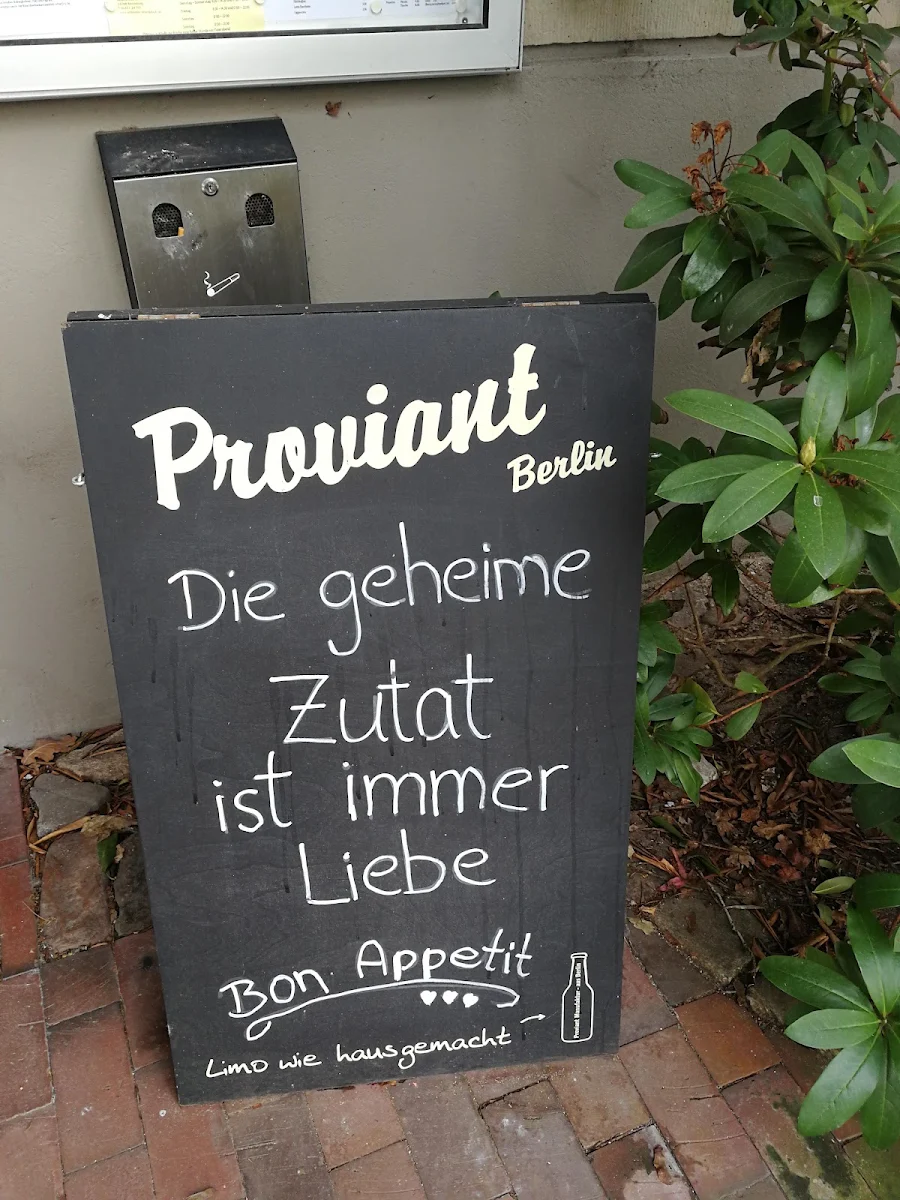 Proviant
Berlin
Die geheime
Zutat
ist immer
Liebe
Bon Appetit
Limo wie hausgemacht